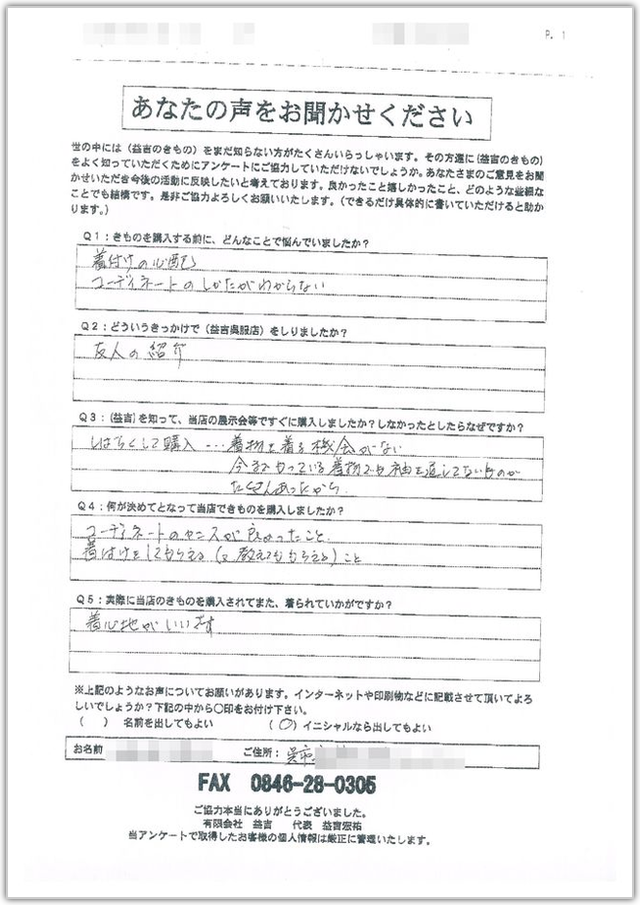 P. 1
あなたの声をお聞かせください
世の中には(益吉のきもの)をまだ知らない方がたくさんいらっしゃいます。その方達に(益吉のきもの)
をよく知っていただくためにアンケートにご協力していただけないでしょうか。あなたさまのご意見をお聞
かせいただき今後の活動に反映したいと考えております。良かったこと嬉しかったこと、どのような些細な
ことでも結構です。是非ご協力よろしくお願いいたします。(できるだけ具体的に書いていただけると助か
ります。)
Q1:きものを購入する前に、どんなことで悩んでいましたか?
着付けの心配
コーディネートのしかたがわからない
Q2:どういうきっかけで(益吉呉服店)をしりましたか?
友人の紹介
Q3:(益吉)を知って、当店の展示会等ですぐに購入しましたか?しなかったとしたらなぜですか?
しばらくして購入…着物を着る機会がない
今までもっている着物でも袖を通してないものが
たくさんあったから
Q4:何が決めてとなって当店できものを購入しましたか?
コーディネートのセンスが良かったこと
着付けをしてもらえる(又教えてももらえる)こと
Q5:実際に当店のきものを購入されてまた、着られていかがですか?
着心地がいいです
※上記のようなお声についてお願いがあります。インターネットや印刷物などに記載させて頂いてよろ
しいでしょうか?下記の中から○印をお付け下さい。
( ) 名前を出してもよい (○)イニシャルなら出してもよい
お名前 ご住所: 呉市
FAX 0846-28-0305
ご協力本当にありがとうございました。
有限会社 益吉 代表 益吉宏祐
当アンケートで取得したお客様の個人情報は厳正に管理いたします。